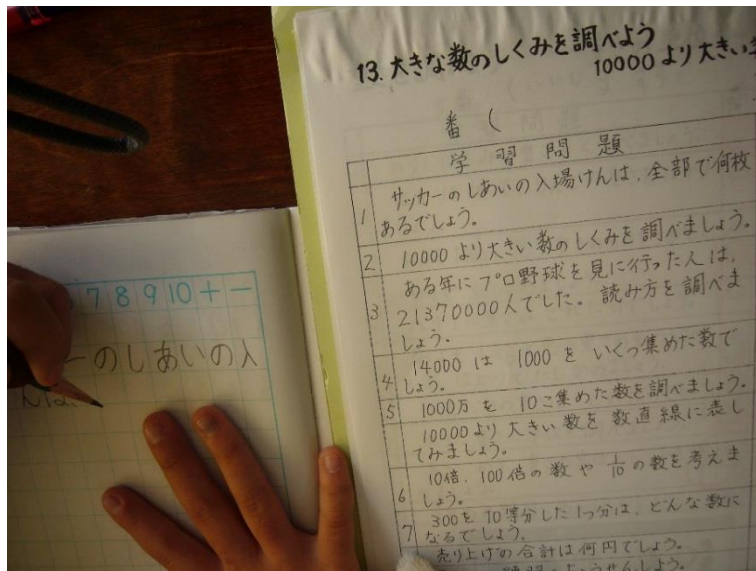 7 8 9 10 + −
ーのしあいの入
んは、
13. 大きな数のしくみを調べよう
10000 より大きい
番 (
学 習 問 題
1 サッカーのしあいの入場けんは、全部で何枚
あるでしょう。
2 10000 より大きい数のしくみを調べましょう。
3 ある年にプロ野球を見に行った人は、
21370000人でした。読み方を調べま
しょう。
4 14000 は 1000 を いくつ集めた数で
しょう。
5 1000万 を 10こ集めた数を調べましょう。
10000より 大きい 数を 数直線に表し
てみましょう。
6 10倍、100倍の数や 1/10 の数を考えま
しょう。
7 300を 10等分した1つ分は、どんな数に
なるでしょう。
売り上げの合計は何円でしょう。